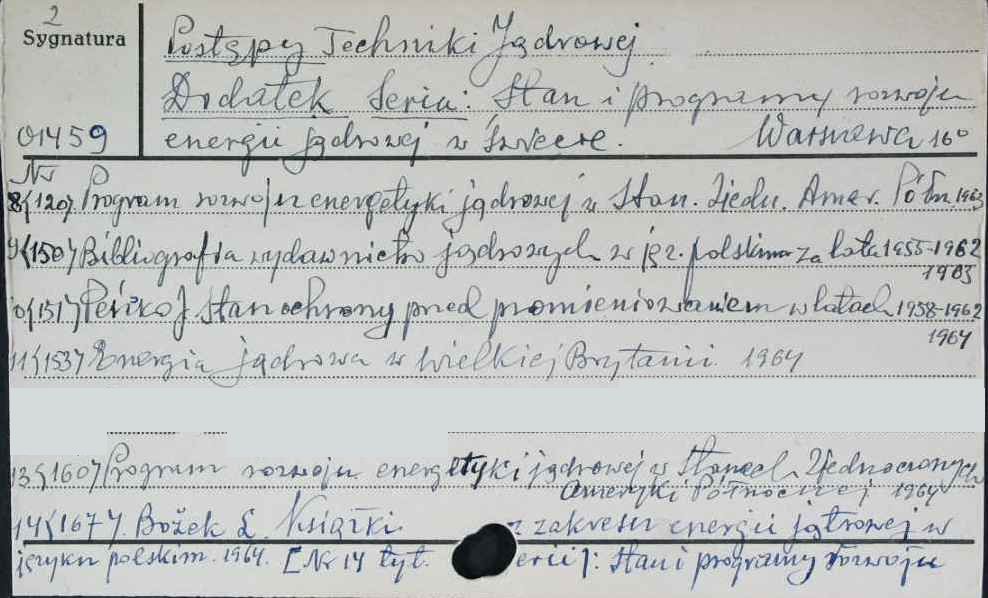 2
Sygnatura
Postępy Techniki Jądrowej
Dodatek Seria: Stan i programy rozwoju
01459 energii jądrowej w świecie. Warszawa 16°
Nr
8(120) Program rozwoju energetyki jądrowej w Stan. Zjedn. Amer. Półn 1963
9(150) Bibliografia wydawnictw jądrowych w jęz. polskim za lata 1955-1962
1963
(151) Peńsko J. Stan ochrony przed promieniowaniem w latach 1958-1962
1964
11(153) Energia jądrowa w Wielkiej Brytanii. 1964
13(160) Program rozwoju energetyki jądrowej w Stanach Zjednoczonych
Ameryki Północnej 1964
14(167). Bożek L. Książki z zakresu energii jądrowej w
języku polskim. 1964. [Nr 14 tyt. erii]: Stan i programy rozwoju